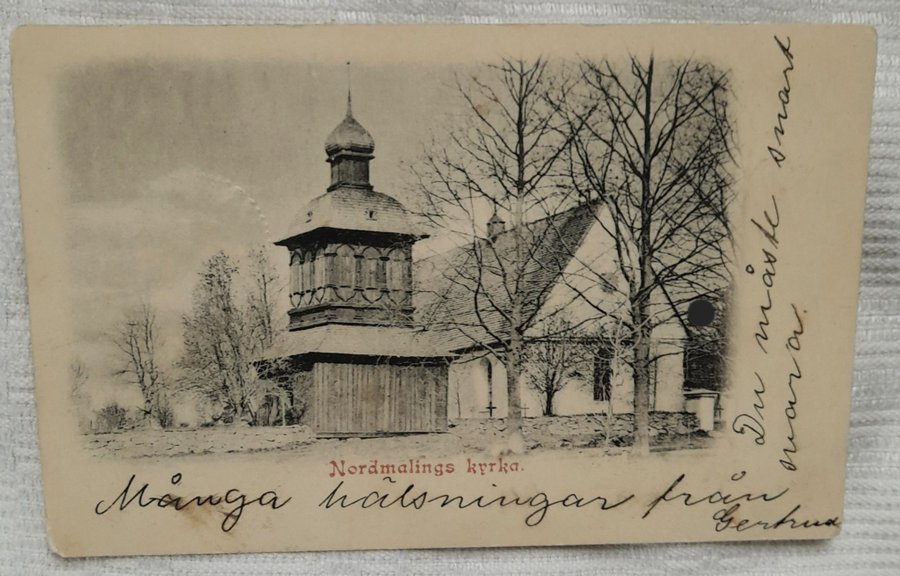 Nordmalings kyrka.
Många hälsningar från
Gertrud
Du måste snart
svara.